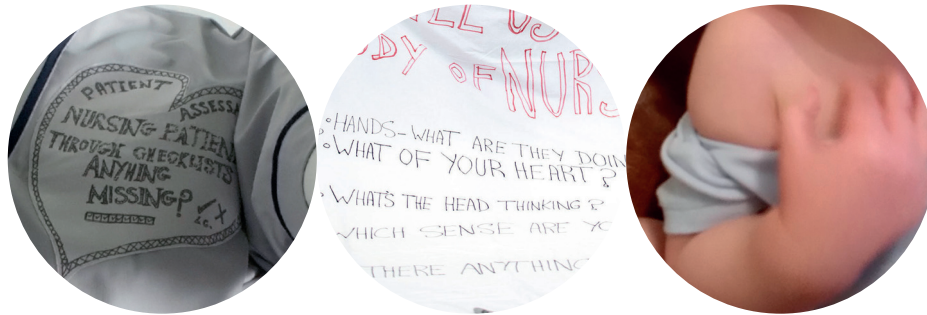 PATIENT
ASSESS
NURSING PATIEN
THROUGH CHECKLISTS
ANYHING
MISSING?
ELL US
DY OF NURS
HANDS-WHAT ARE THEY DOIN
WHAT OF YOUR HEART?
WHAT'S THE HEAD THINKING?
WHICH SENSE ARE YO
THERE ANYTHING